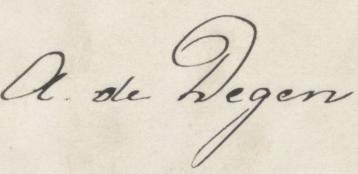 A. de Degen